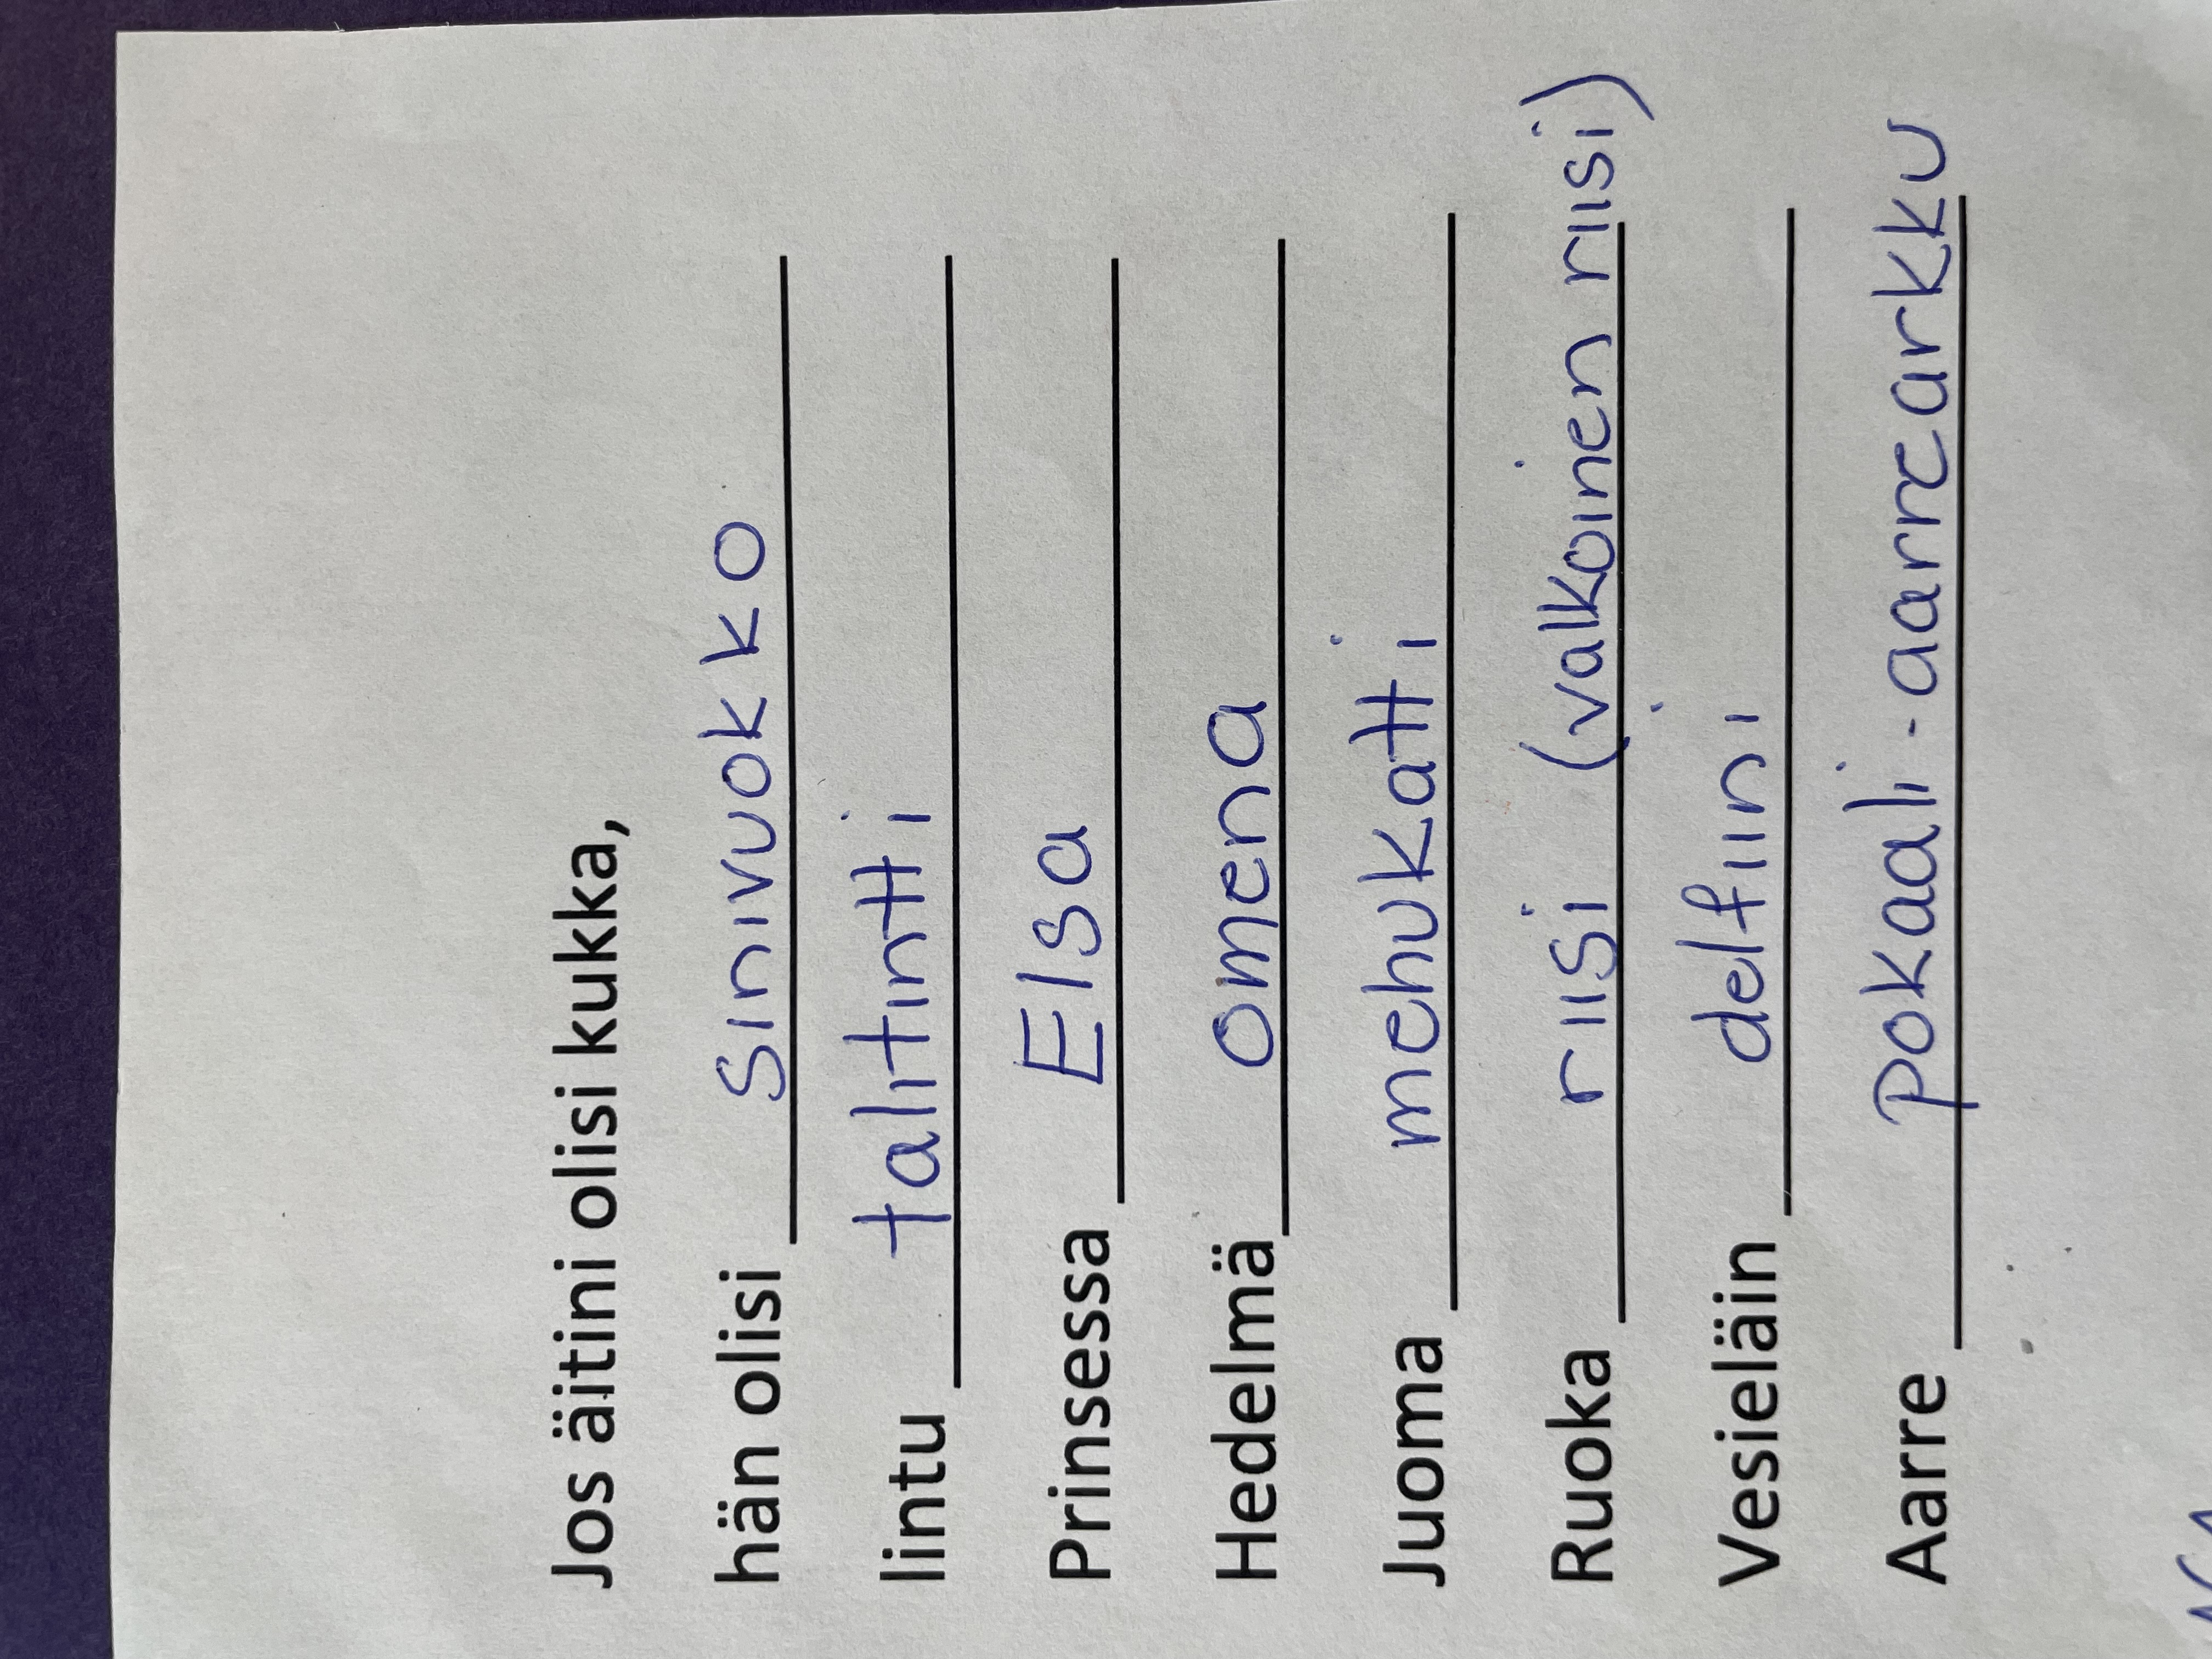 Jos äitini olisi kukka,
hän olisi sinivuokko
lintu talitintti
Prinsessa Elsa
Hedelmä omena
Juoma mehukatti
Ruoka riisi (valkoinen riisi)
Vesieläin delfiini
Aarre pokaali-aarrearkku